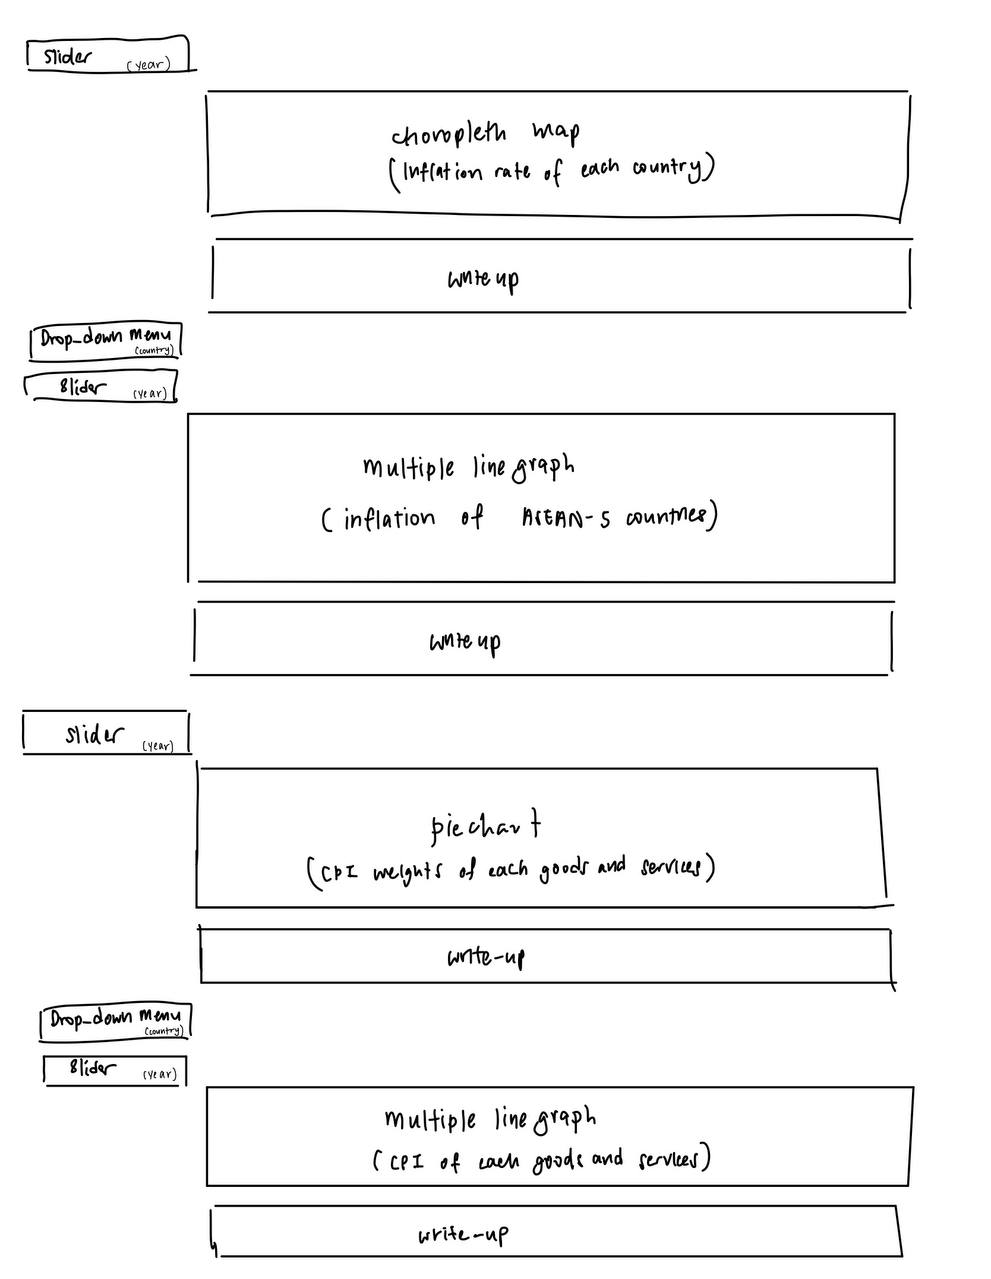 Slider (year)
choropleth map
(Inflation rate of each country)
write up
Drop-down menu
(country)
Slider (year)
multiple line graph
(inflation of ASEAN-5 countries)
write up
slider (year)
pie chart
(CPI weights of each goods and services)
write-up
Drop-down menu
(country)
Slider (year)
multiple line graph
(CPI of each goods and services)
write-up